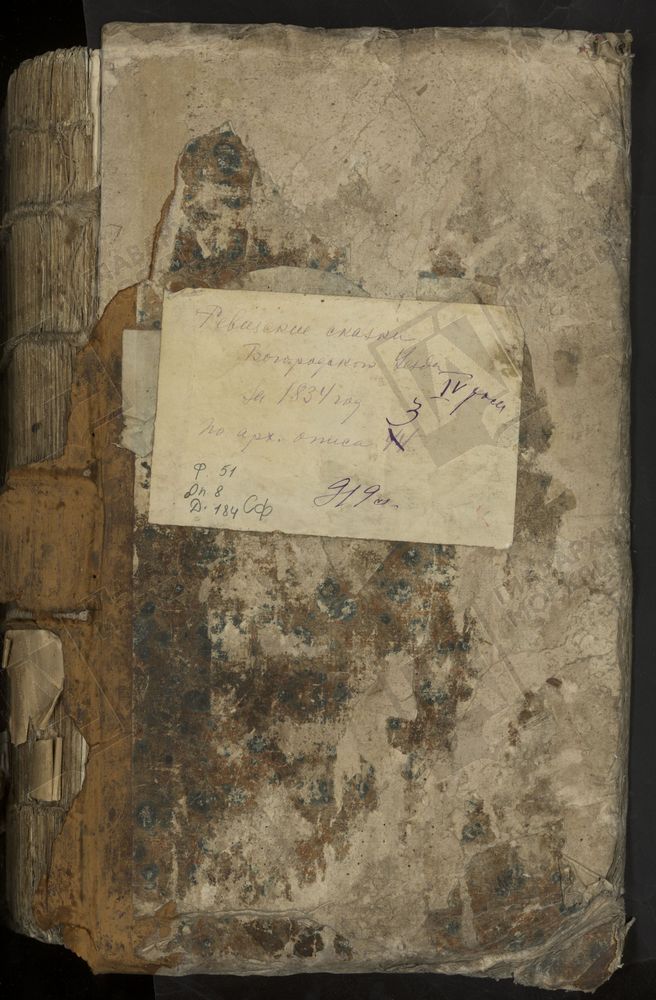 Ревизские сказки
Богородского уезда
IV том
За 1834 год
3
по арх. описи №
Ф. 51
Оп. 8
Д. 184 Сф
919 л.